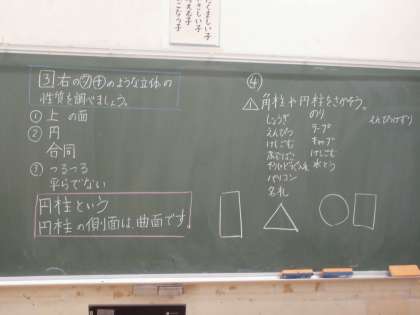 たくましい子
やさしい子
考える子
おこなう子
3 右のウエのような立体の
性質を調べましょう。
① 上の面
② 円
合同
③ つるつる
平らでない
円柱という
円柱の側面は、曲面です。
④
角柱や円柱をさがそう。
しょうぎ
えんぴつ
けしごむ
パソコン
名札
のり
テープ
キャップ
けしごむ
水とう
えんぴつけずり